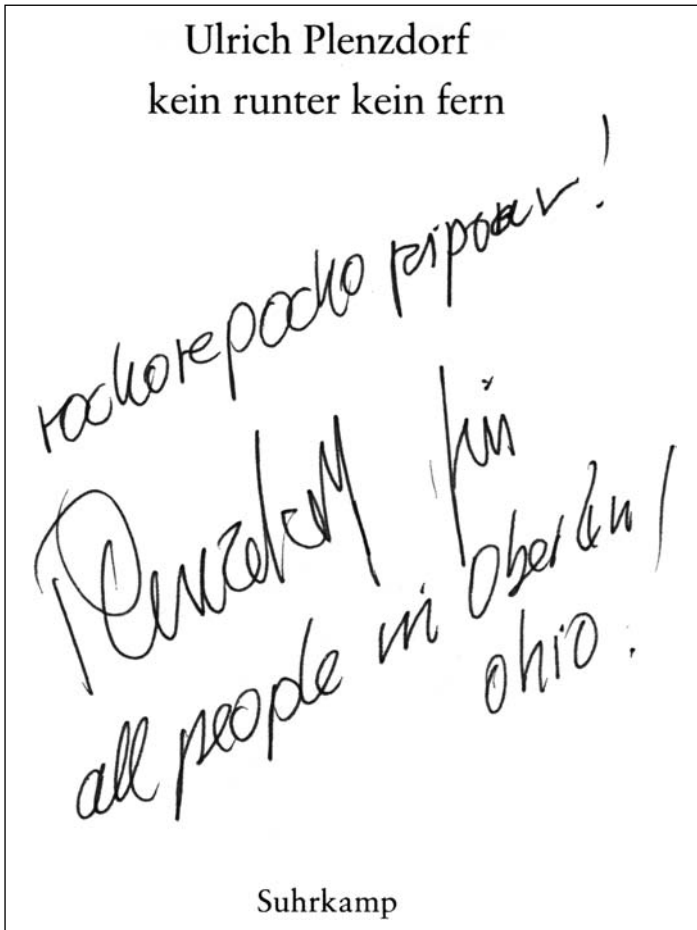 Ulrich Plenzdorf
kein runter kein fern
rochorepocho pipoar!
Plenzdorf für
all people in Oberlin/
ohio.
Suhrkamp